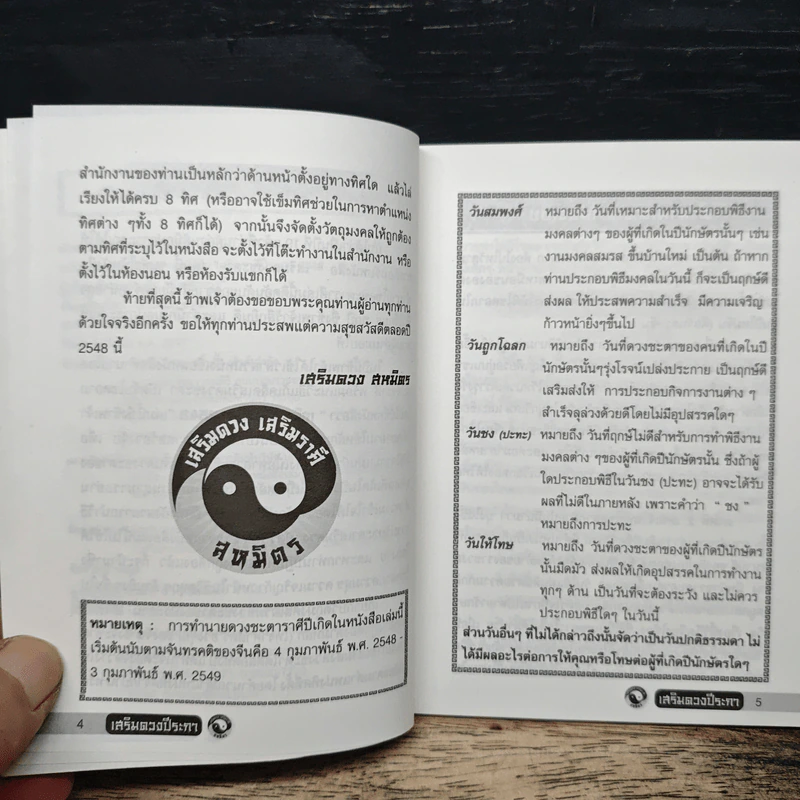 สำนักงานของท่านเป็นหลักว่าด้านหน้าตั้งอยู่ทางทิศใด แล้วไล่
เรียงให้ได้ครบ 8 ทิศ (หรืออาจใช้เข็มทิศช่วยในการหาตำแหน่ง
ทิศต่าง ๆทั้ง 8 ทิศก็ได้) จากนั้นจึงจัดตั้งวัตถุมงคลให้ถูกต้อง
ตามทิศที่ระบุไว้ในหนังสือ จะตั้งไว้ที่โต๊ะทำงานในสำนักงาน หรือ
ตั้งไว้ในห้องนอน หรือห้องรับแขกก็ได้
ท้ายที่สุดนี้ ข้าพเจ้าต้องขอขอบพระคุณท่านผู้อ่านทุกท่าน
ด้วยใจจริงอีกครั้ง ขอให้ทุกท่านประสพแต่ความสุขสวัสดีตลอดปี
2548 นี้
เสริมดวง สหมิตร
เสริมดวง เสริมราศี
สหมิตร
หมายเหตุ : การทำนายดวงชะตาราศีปีเกิดในหนังสือเล่มนี้
เริ่มต้นนับตามจันทรคติของจีนคือ 4 กุมภาพันธ์ พ.ศ. 2548 -
3 กุมภาพันธ์ พ.ศ. 2549
4 เสริมดวงปีระกา
วันสมพงศ์ หมายถึง วันที่เหมาะสำหรับประกอบพิธีงาน
มงคลต่างๆ ของผู้ที่เกิดในปีนักษัตรนั้นๆ เช่น
งานมงคลสมรส ขึ้นบ้านใหม่ เป็นต้น ถ้าหาก
ท่านประกอบพิธีมงคลในวันนี้ ก็จะเป็นฤกษ์ดี
ส่งผล ให้ประสพความสำเร็จ มีความเจริญ
ก้าวหน้ายิ่งๆขึ้นไป
วันถูกโฉลก หมายถึง วันที่ดวงชะตาของคนที่เกิดในปี
นักษัตรนั้นๆรุ่งโรจน์เปล่งประกาย เป็นฤกษ์ดี
เสริมส่งให้ การประกอบกิจการงานต่าง ๆ
สำเร็จลุล่วงด้วยดีโดยไม่มีอุปสรรคใดๆ
วันชง (ปะทะ) หมายถึง วันที่ฤกษ์ไม่ดีสำหรับการทำพิธีงาน
มงคลต่าง ๆของผู้ที่เกิดปีนักษัตรนั้น ซึ่งถ้าผู้
ใดประกอบพิธีในวันชง (ปะทะ) อาจจะได้รับ
ผลที่ไม่ดีในภายหลัง เพราะคำว่า " ชง "
หมายถึงการปะทะ
วันให้โทษ หมายถึง วันที่ดวงชะตาของผู้ที่เกิดปีนักษัตร
นั้นมืดมัว ส่งผลให้เกิดอุปสรรคในการทำงาน
ทุกๆ ด้าน เป็นวันที่จะต้องระวัง และไม่ควร
ประกอบพิธีใดๆ ในวันนี้
ส่วนวันอื่นๆ ที่ไม่ได้กล่าวถึงนั้นจัดว่าเป็นวันปกติธรรมดา ไม่
ได้มีผลอะไรต่อการให้คุณหรือโทษต่อผู้ที่เกิดปีนักษัตรใดๆ
เสริมดวงปีระกา 5